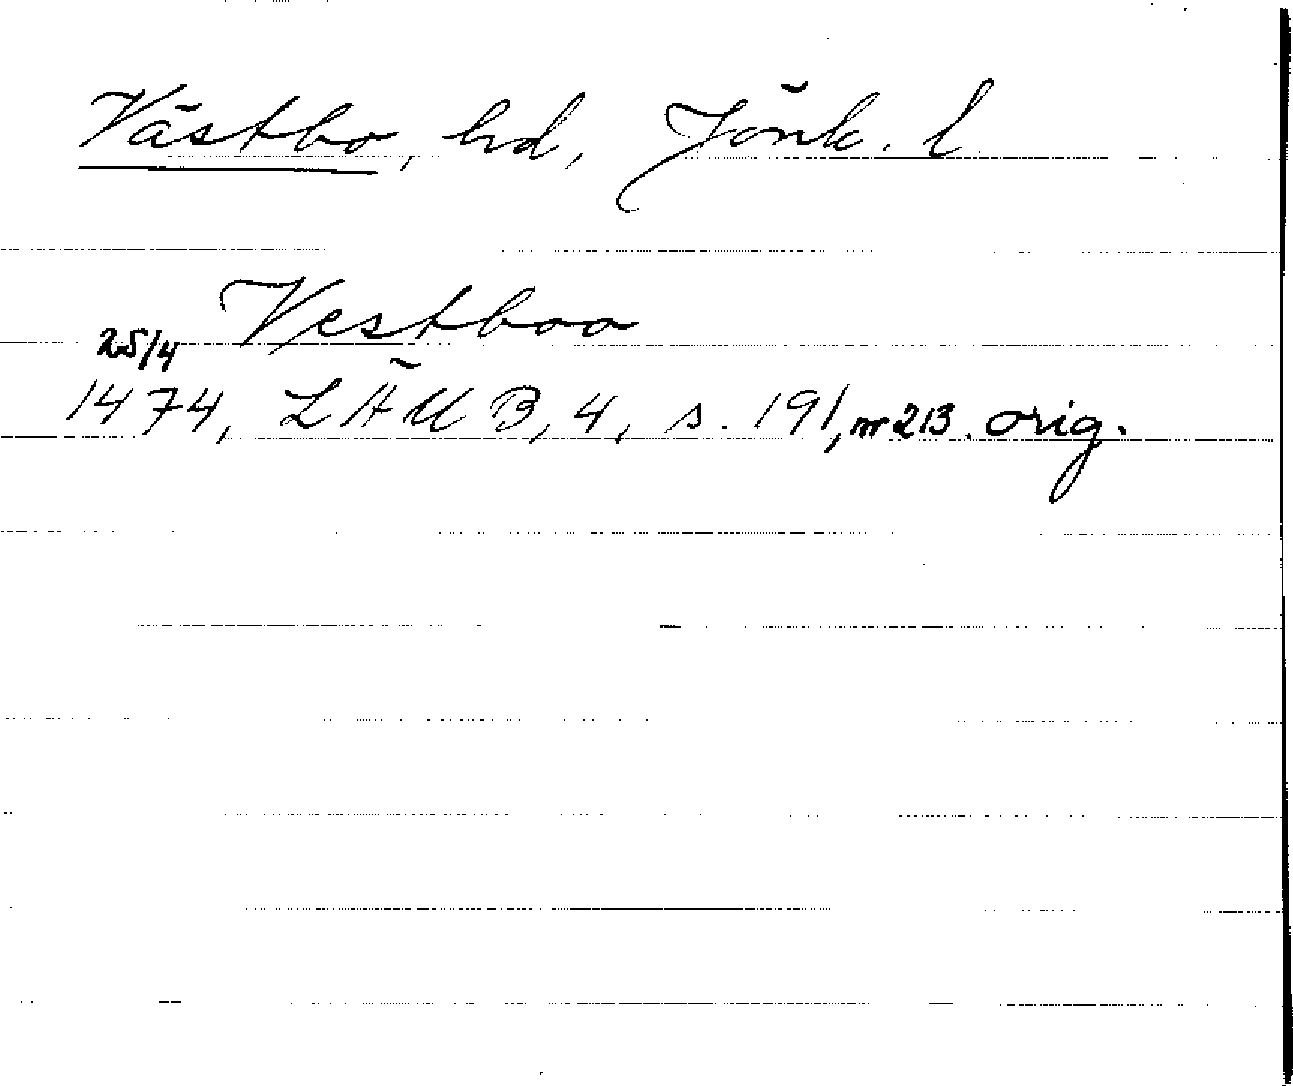 Västbo, hd, Jönk. l
Vestboo
25/4
1474, LÄUB, 4, s. 191, nr 213. orig.